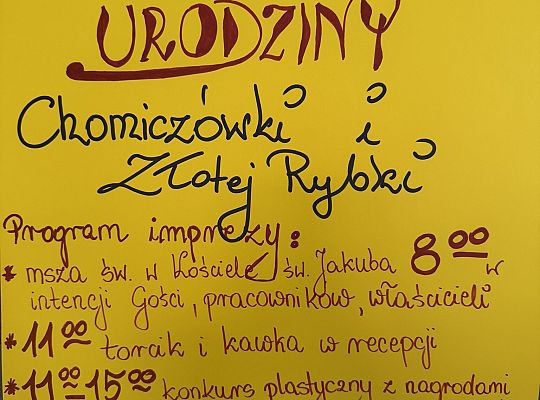 URODZINY
Chomiczówki i
Złotej Rybki
Program imprezy:
* msza św. w Kościele św. Jakuba 8⁰⁰ w
intencji Gości, pracowników, właścicieli
* 11⁰⁰ torcik i kawka w recepcji
* 11⁰⁰-15⁰⁰ konkurs plastyczny z nagrodami